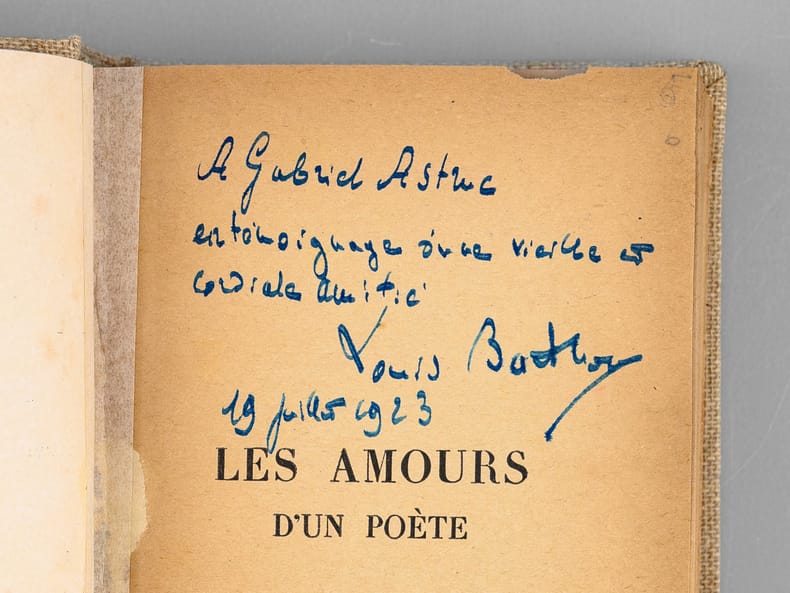 A Gabriel Astruc
en témoignage d'une vieille et
cordiale amitié
Louis Barthou
19 juillet 1923
LES AMOURS
D'UN POÈTE